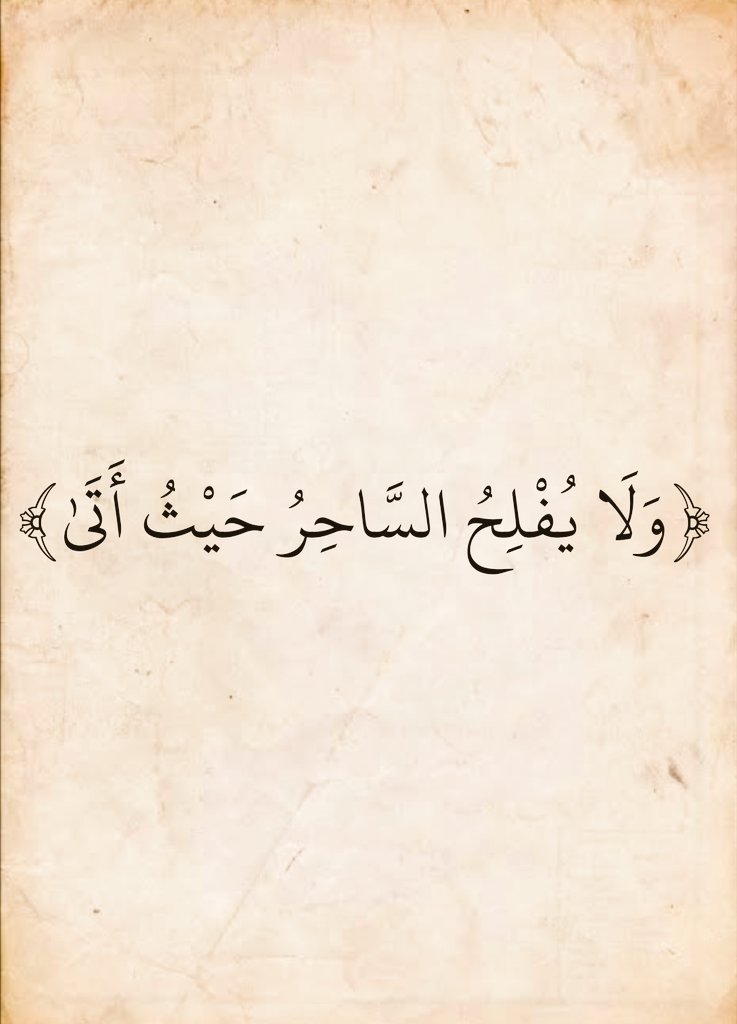 ﴿وَلَا يُفْلِحُ السَّاحِرُ حَيْثُ أَتَىٰ﴾